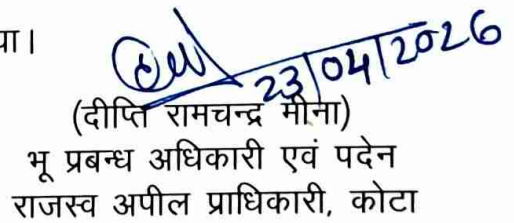 या।
23/04/2026
(दीप्ति रामचन्द्र मीना)
भू प्रबन्ध अधिकारी एवं पदेन
राजस्व अपील प्राधिकारी, कोटा